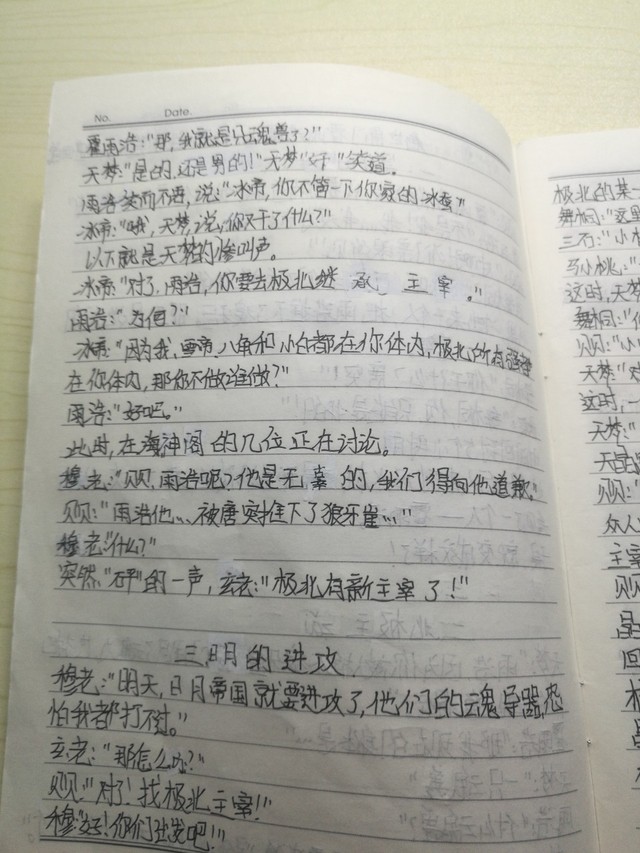 No. Date.
霍雨浩:"那,我就是只魂兽了?"
天梦:"是的,还是男的!"天梦"奸"笑道。
雨浩笑而不语,说:"冰帝,你不管一下你家的冰蚕?"
冰帝:"哦,天梦,说,你又干了什么?"
以下就是天梦的惨叫声。
冰帝:"对了,雨浩,你要去极北继承主宰。"
雨浩:"为何?"
冰帝:"因为我,雪帝,八角和小白都在你体内,极北的所有强者
在你体内,那你不做谁做?"
雨浩:"好吧。"
此时,在海神阁的几位正在讨论。
穆老:"贝贝,雨浩呢?他是无辜的,我们得向他道歉。"
贝贝:"雨浩他……被唐雅推下了狼牙崖……"
穆老"什么?"
突然"砰"的一声,玄老:"极北有新主宰了!"
三.日月的进攻.
穆老:"明天,日月帝国就要进攻了,他们的魂导器,恐
怕我都打不过。"
玄老:"那怎么办?"
贝贝:"对了!找极北主宰!"
穆"好!你们出发吧!"
极北的某一
舞桐:"这里
三石:"小
马小桃:"
这时,天梦
舞桐:"你
贝贝:"
天梦"对
这时,一
天梦:"
贝贝:
众人
主宰
贝贝
回